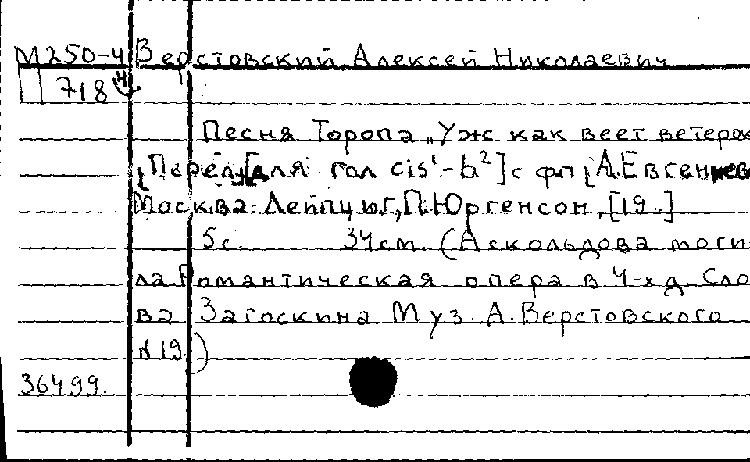 М250-4 Верстовский Алексей Николаевич
718
Песня Торопа „Уж как веет ветерок
[Перел. [для гол cis¹-b²] с фп [А. Евгениев
Москва-Лейпциг, П. Юргенсон, [19 .]
5с. 34см. (Аскольдова моги-
ла Романтическая опера в 4-х д. Сло
ва Загоскина Муз. А. Верстовского
N 19.)
36499.